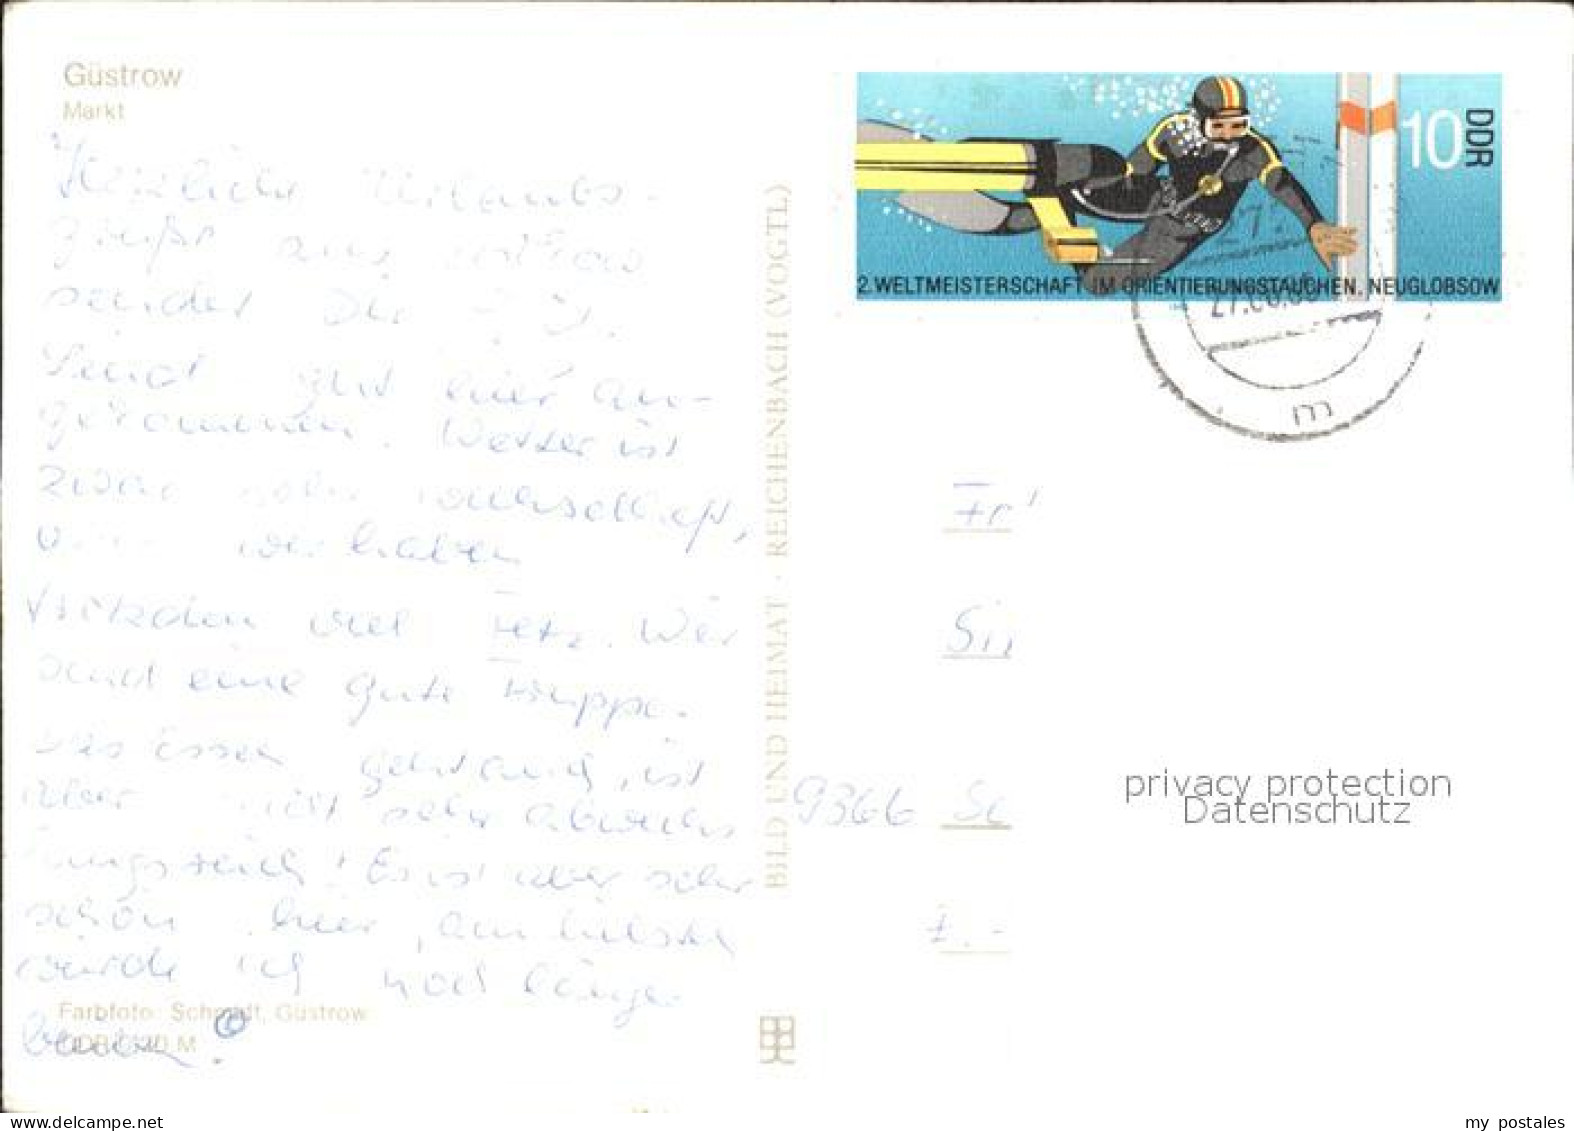 Güstrow
Markt
Herzliche Urlaubs-
grüße aus
sendet Dir
Sind gut hier an-
gekommen. Wetter ist
zwar sehr wechselhaft,
wir haben
trotzdem viel Fetz. Wir
sind eine gute Truppe.
Das Essen ist
aber nicht sehr abwechs
lungsreich! Es ist aber sehr
schön hier, am liebsten
würde ich noch länger
bleiben.
Farbfoto: Schmidt, Güstrow
BILD UND HEIMAT · REICHENBACH (VOGTL)
10 DDR
2. WELTMEISTERSCHAFT IM ORIENTIERUNGSTAUCHEN, NEUGLOBSOW
m
Fr
Sin
9366 Sc
privacy protection
Datenschutz
my postales